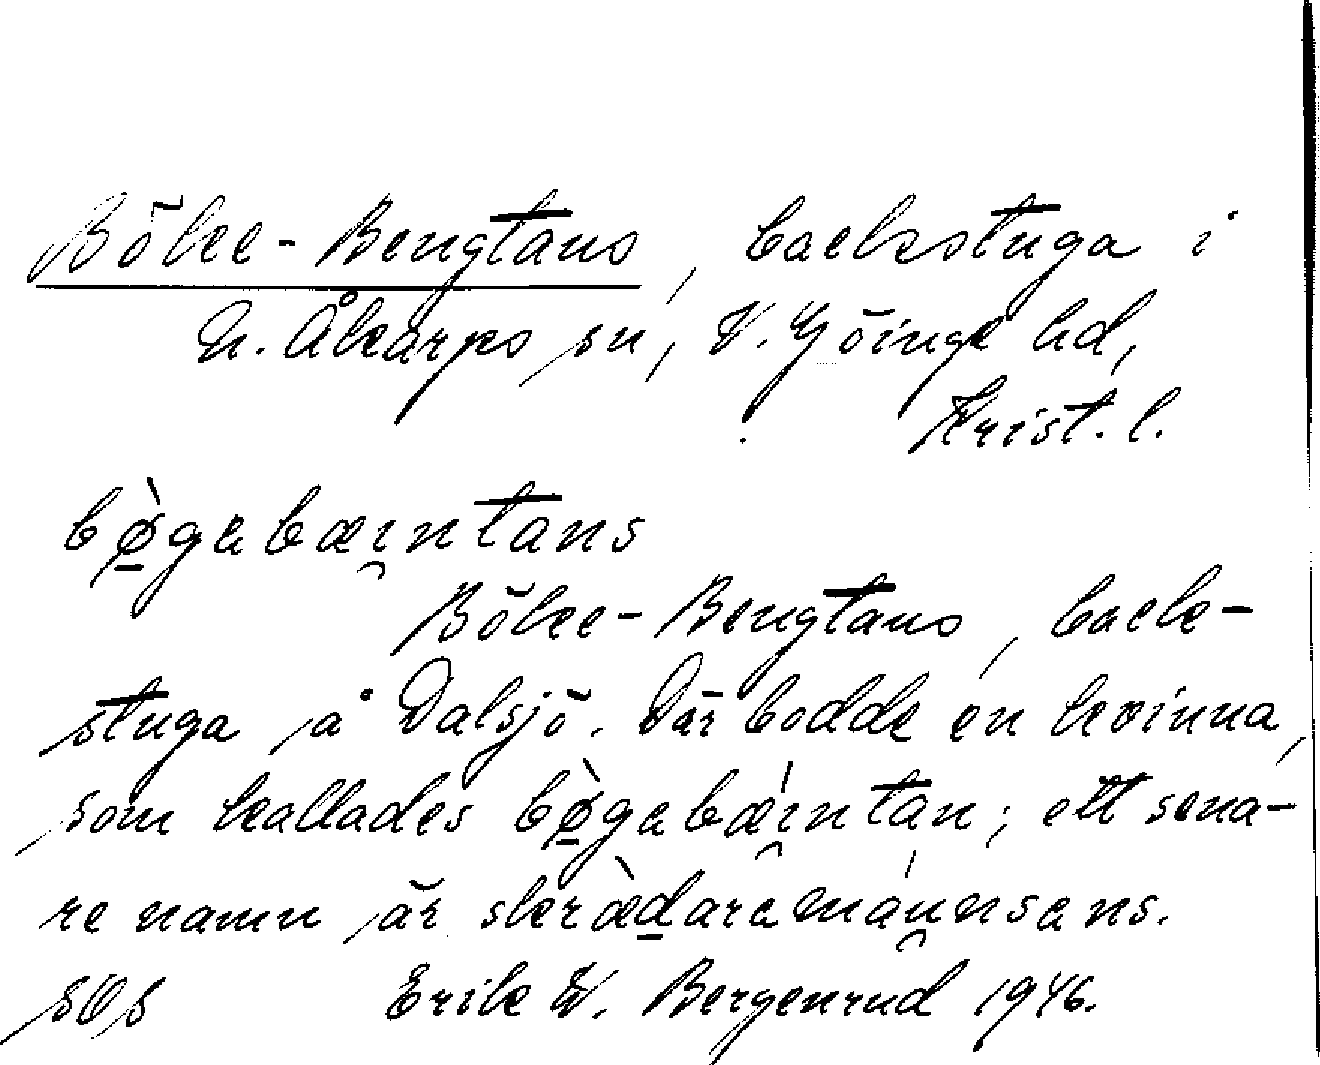 Böke-Bengtans, backstuga i
N. Åkarps sn, V. Göinge hd,
Krist. l.
bø̀gabæɪntans
Böke-Bengtans, back-
stuga å Dalsjö. Där bodde en kvinna,
som kallades bø̀gabæ̀ɪntan; ett sena-
re namn är skræ̀daramánnsans.
SOS Erik W. Bergenrud 1946.